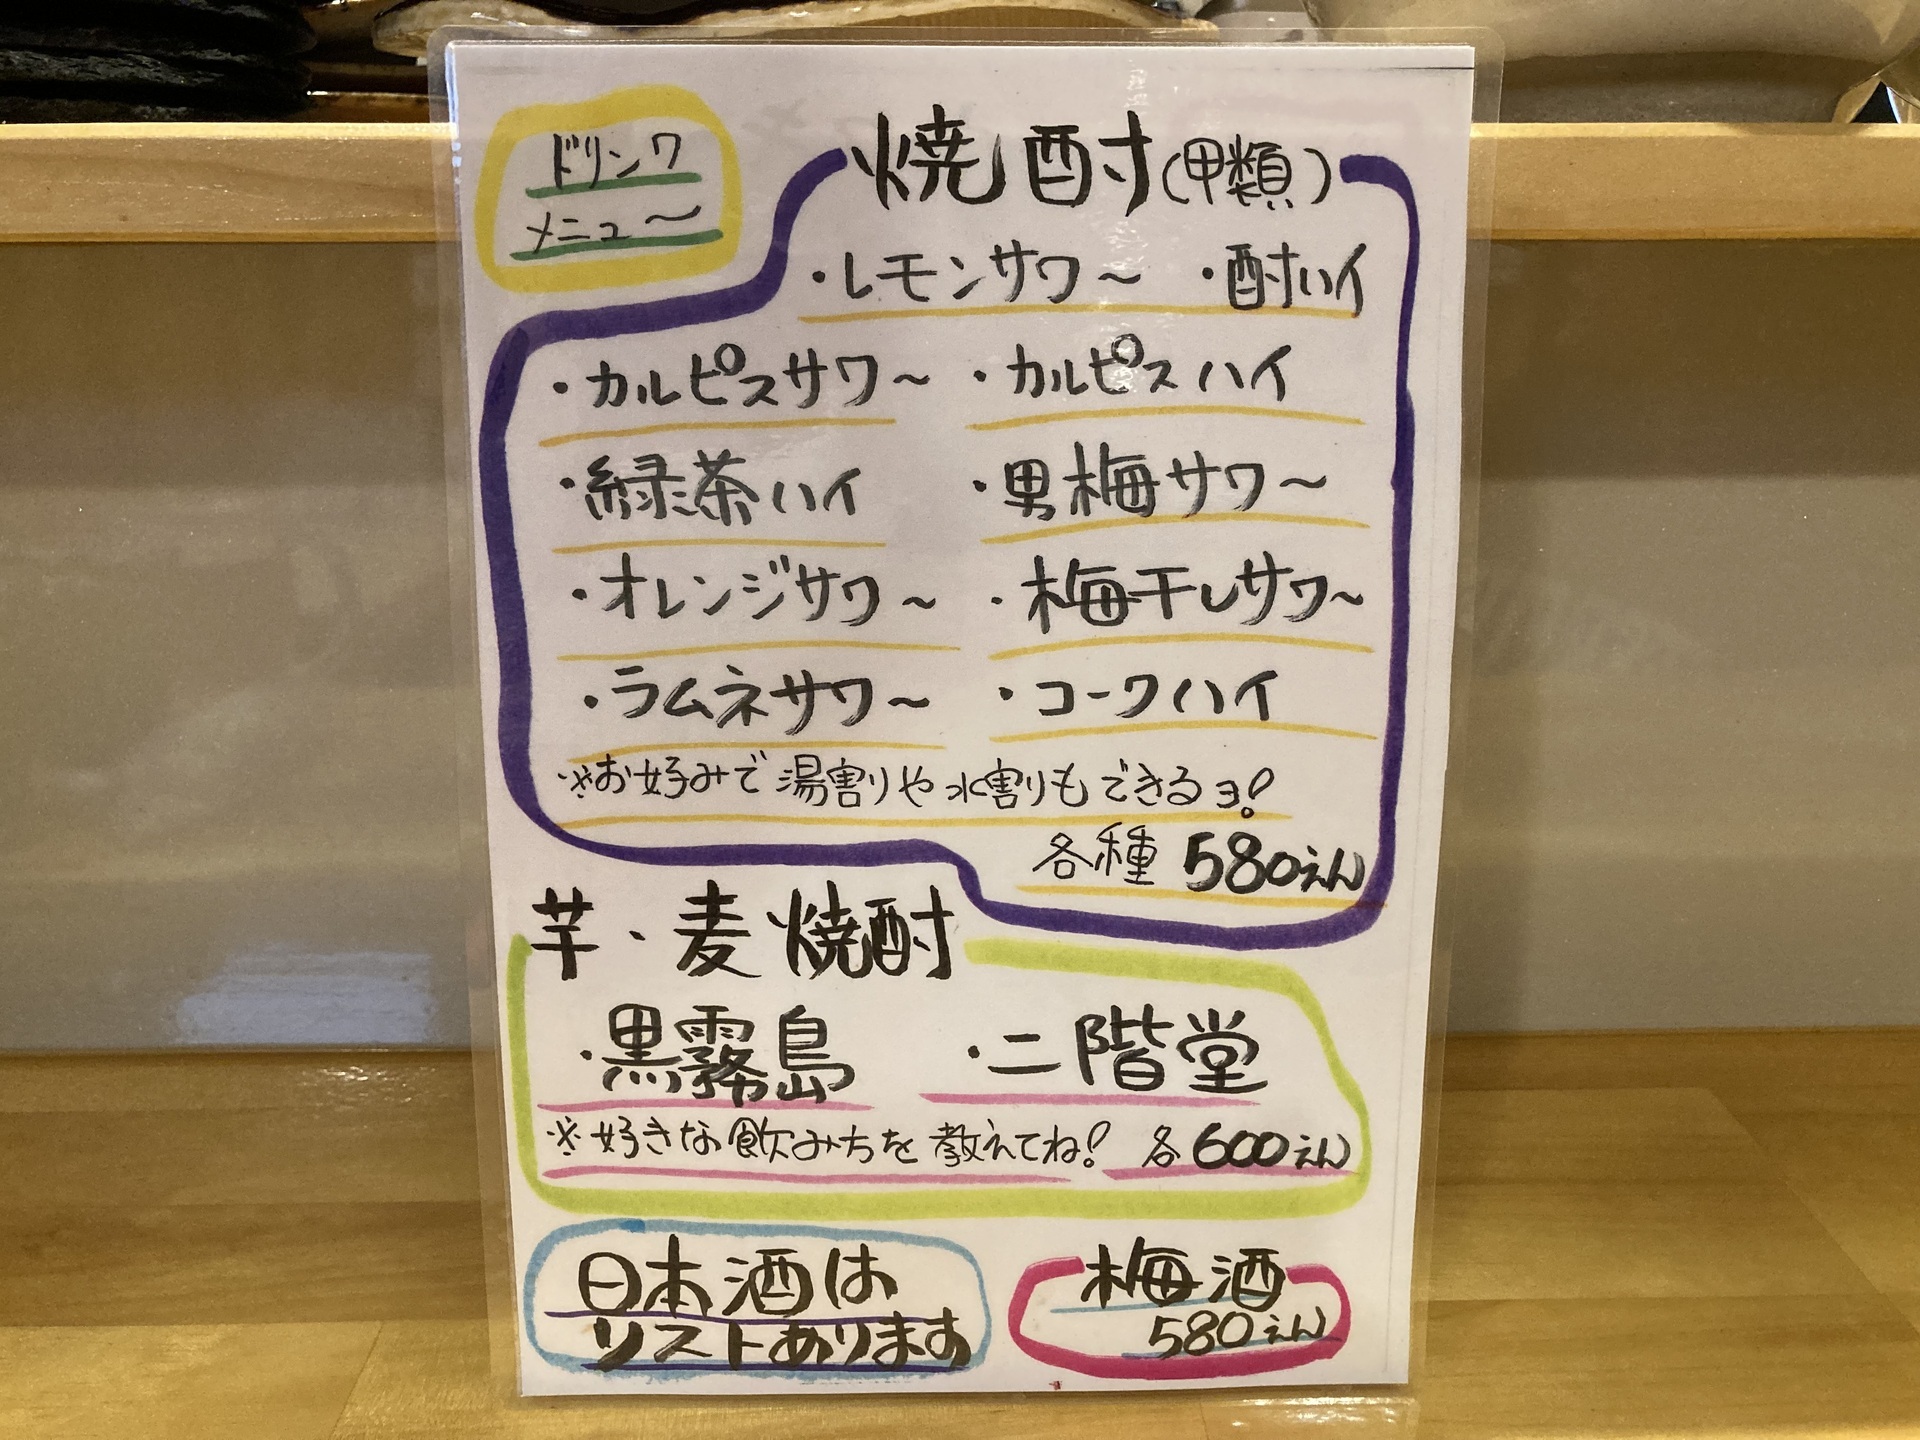 ドリンク
メニュー
焼酎(甲類)
・レモンサワ～ ・酎ハイ
・カルピスサワ～ ・カルピスハイ
・緑茶ハイ ・男梅サワ～
・オレンジサワ～ ・梅干しサワ～
・ラムネサワ～ ・コークハイ
※お好みで湯割りや水割りもできるヨ!
各種 580えん
芋・麦焼酎
・黒霧島 ・二階堂
※好きな飲みちを教えてね! 各600えん
日本酒は
リストあります
梅酒
580えん